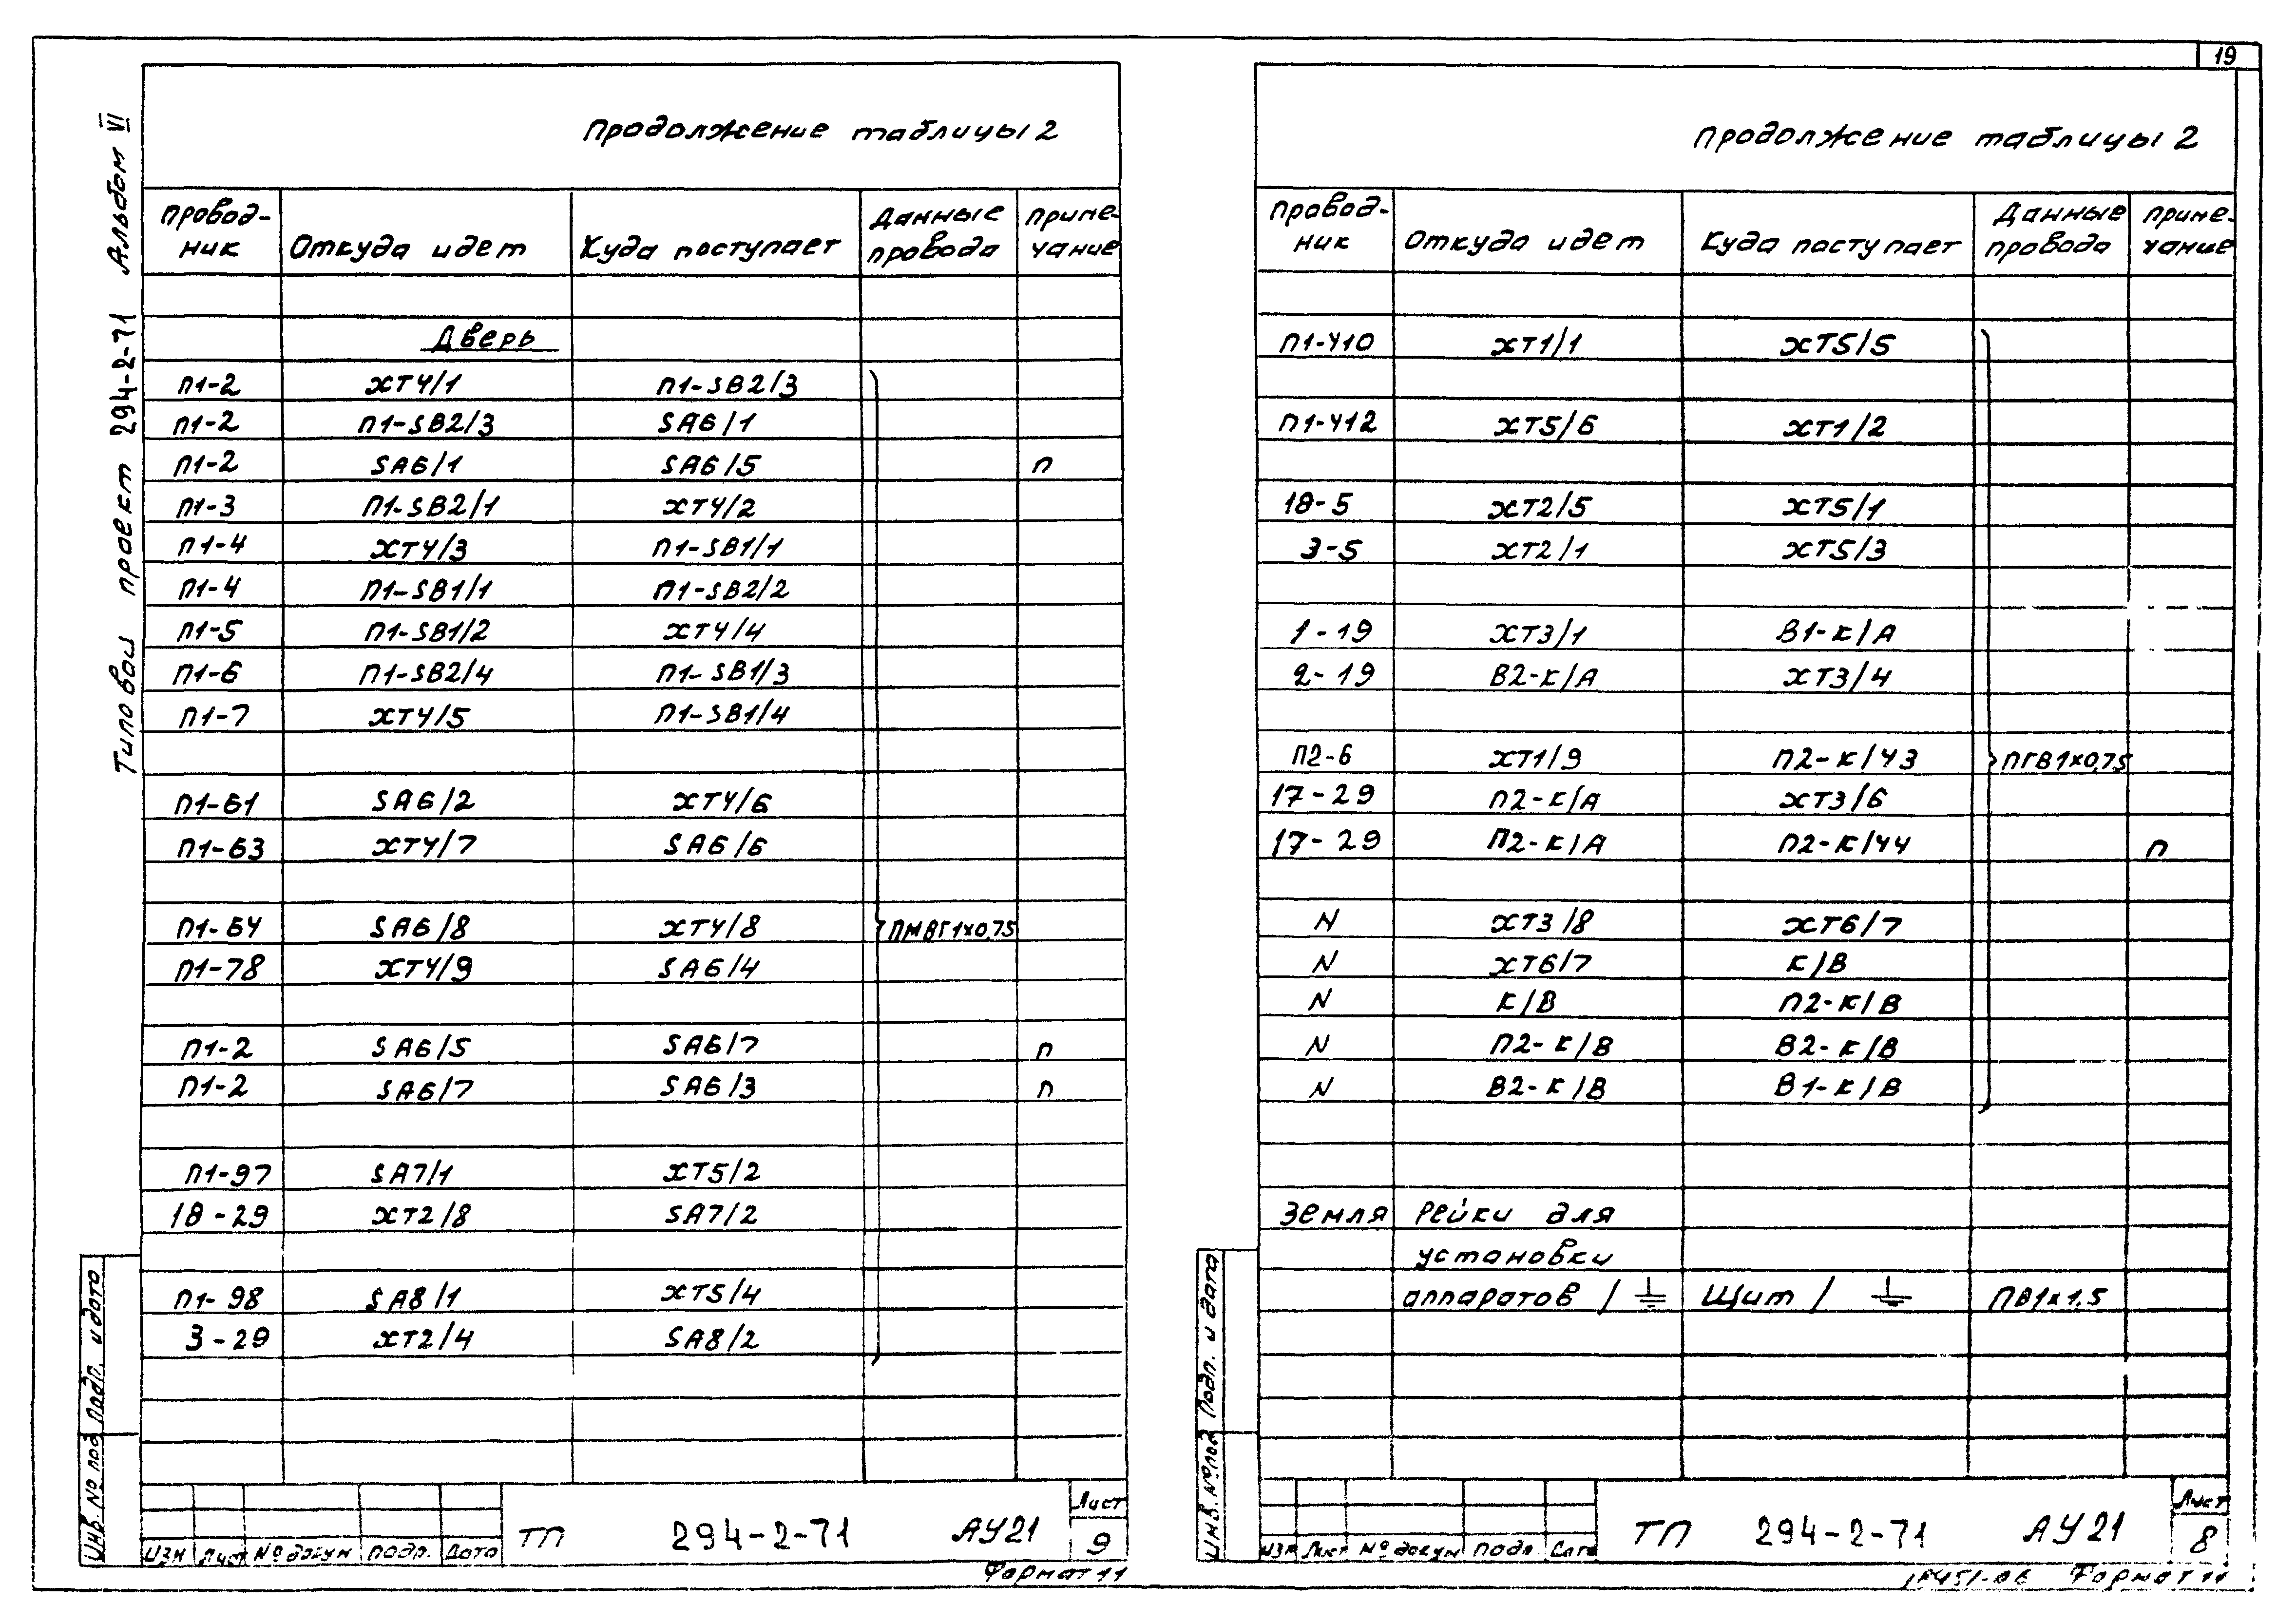 19
Типовой проект 294-2-71 Альбом VI
Продолжение таблицы 2
Провод-ник Откуда идет Куда поступает Данные провода Приме-чание
Дверь
П1-2 XT4/1 П1-SB2/3
П1-2 П1-SB2/3 SA6/1
П1-2 SA6/1 SA6/5 П
П1-3 П1-SB2/1 XT4/2
П1-4 XT4/3 П1-SB1/1
П1-4 П1-SB1/1 П1-SB2/2
П1-5 П1-SB1/2 XT4/4
П1-6 П1-SB2/4 П1-SB1/3
П1-7 XT4/5 П1-SB1/4
П1-61 SA6/2 XT4/6
П1-63 XT4/7 SA6/6
П1-64 SA6/8 XT4/8 ПМВГ1x0,75
П1-78 XT4/9 SA6/4
П1-2 SA6/5 SA6/7 П
П1-2 SA6/7 SA6/3 П
П1-97 SA7/1 XT5/2
18-29 XT2/8 SA7/2
П1-98 SA8/1 XT5/4
3-29 XT2/4 SA8/2
Инв. № под Подп. и дата
Изм Лист № докум Подп. Дата
ТП 294-2-71 АУ21
Лист
9
Формат 11
Продолжение таблицы 2
Провод-ник Откуда идет Куда поступает Данные провода Приме-чание
П1-410 XT1/1 XT5/5
П1-412 XT5/6 XT1/2
18-5 XT2/5 XT5/1
3-5 XT2/1 XT5/3
1-19 XT3/1 В1-К/А
2-19 В2-К/А XT3/4
П2-6 XT1/9 П2-К/43 ПГВ1x0,75
17-29 П2-К/А XT3/6
17-29 П2-К/А П2-К/44 П
N XT3/8 XT6/7
N XT6/7 К/В
N К/В П2-К/В
N П2-К/В В2-К/В
N В2-К/В В1-К/В
Земля Рейки для
установки
аппаратов / ⏚ Щит / ⏚ ПВ1x1,5
Инв. № под Подп. и дата
Изм Лист № докум Подп. Дата
ТП 294-2-71 АУ21
Лист
8
Формат 11